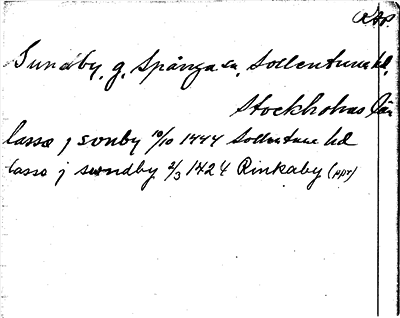 Sundby, g. Spånga sn, Sollentuna hd,
Stockholms län
lasse j sonby 10/10 1444 Sollentuna hd
lasse j sundby 2/3 1424 Rinkaby